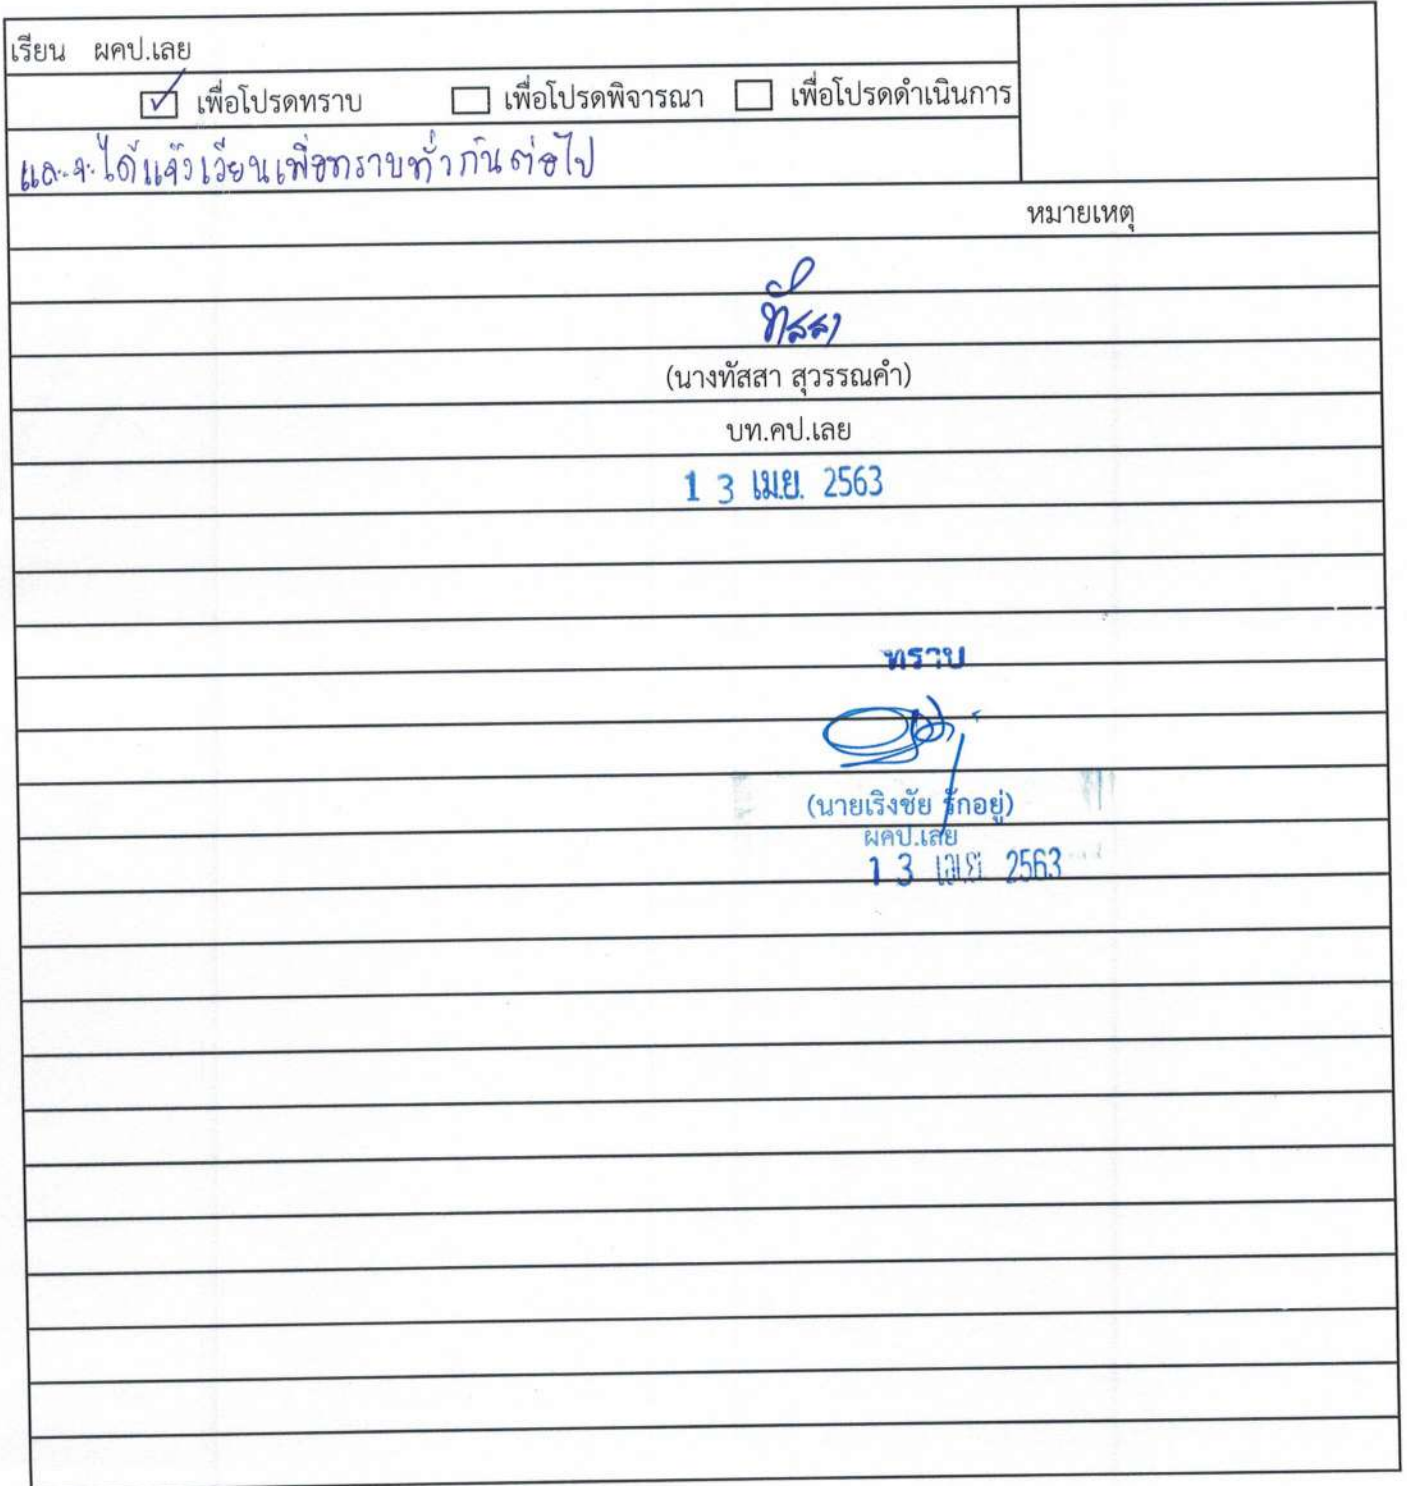 เรียน ผคป.เลย
เพื่อโปรดทราบ เพื่อโปรดพิจารณา เพื่อโปรดดำเนินการ
และจะได้แจ้งเวียนเพื่อทราบทั่วกันต่อไป
หมายเหตุ
ทัสสา
(นางทัสสา สุวรรณคำ)
บท.คป.เลย
1 3 เม.ย. 2563
ทราบ
(นายเริงชัย รักอยู่)
ผคป.เลย
1 3 เม.ย. 2563